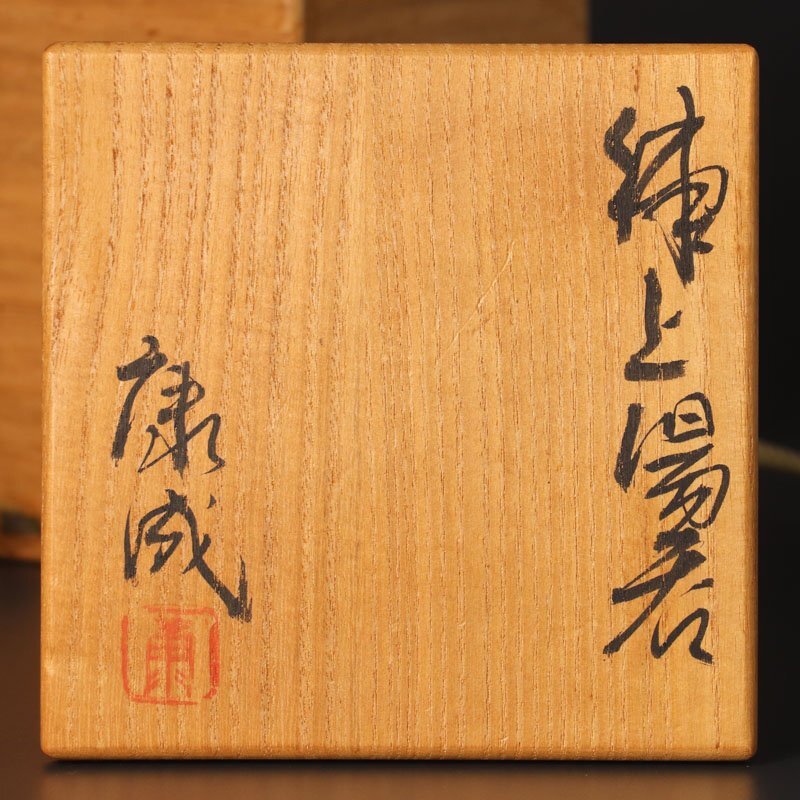 練上湯呑
康成